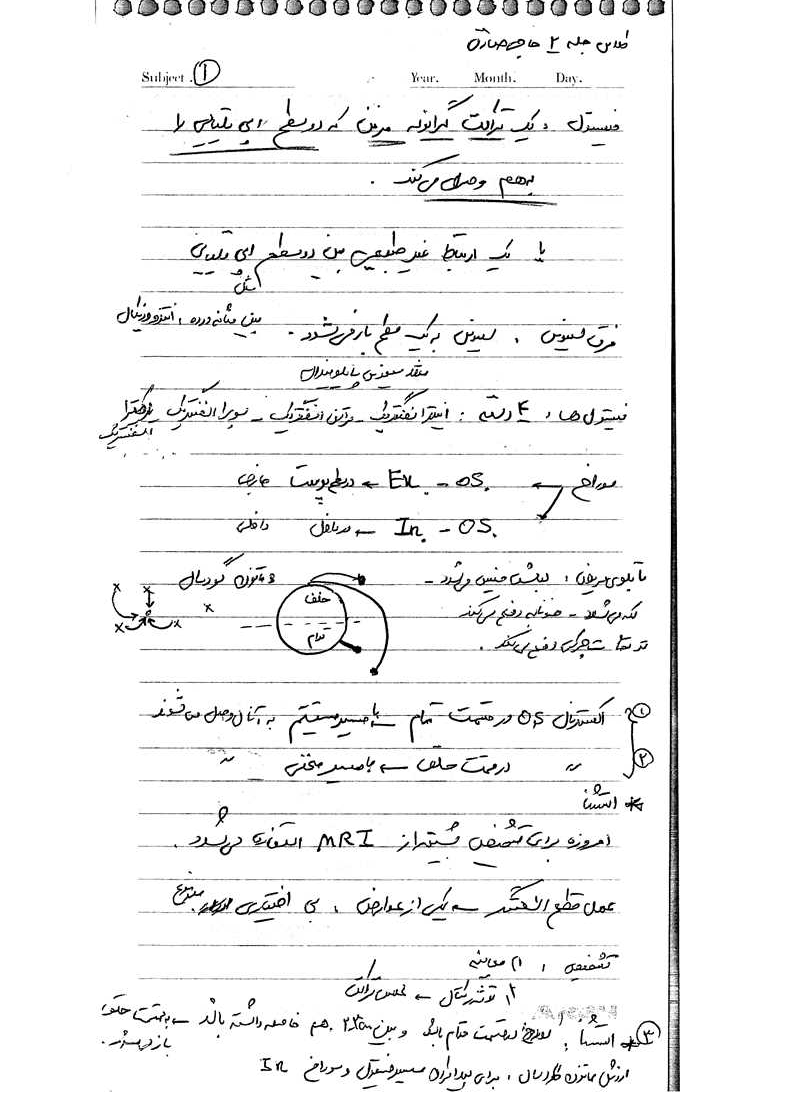 کلاس جلسه ۲
Subject. ① Year. Month. Day.
فیستول : یک تراکت گرانوله مزمن که دو سطح اپی تلیالی را
بهم وصل می‌کند .
یا یک ارتباط غیر طبیعی بین دو سطح اپی تلیالی
مثل
بین مثانه و روده : انترووزیکال
فرق سینوس : سینوس به یک سطح باز می‌شود .
فیستول ها : ۴ دسته : اینترا اسفنکتریک - ترانس اسفنکتریک - سوپرا اسفنکتریک - اکسترا
اسفنکتریک
سوراخ ← Ex - OS. ← در سطح پوست خارجی
In - OS. ← در داخل داخلی
تابلوی مریض : لباسش خیس می‌شود - قانون گودسال
لکه می‌شود - خونابه دفع می‌کند
ترشحات چرکی دفع می‌کند .
خلف
قدام
① اکسترنال OS در قسمت قدام ← با مسیر مستقیم به آنال وصل می‌شوند
② " در قسمت خلف ← با مسیر منحنی "
* استثنا
امروزه برای تشخیص بیشتر از MRI استفاده می‌شود .
عمل قطع اسفنکتر ← یکی از عوارض : بی اختیاری مدفوع
تشخیص : ۱) معاینه
۲) توشه رکتال ← لمس تراکت
③ * استثنا : سوراخ در قسمت قدام باشد و بین هم فاصله داشته باشد ← به قسمت خلف
باز می‌شود.
ارزش قانون گودسال : برای پیدا کردن مسیر فیستول و سوراخ In